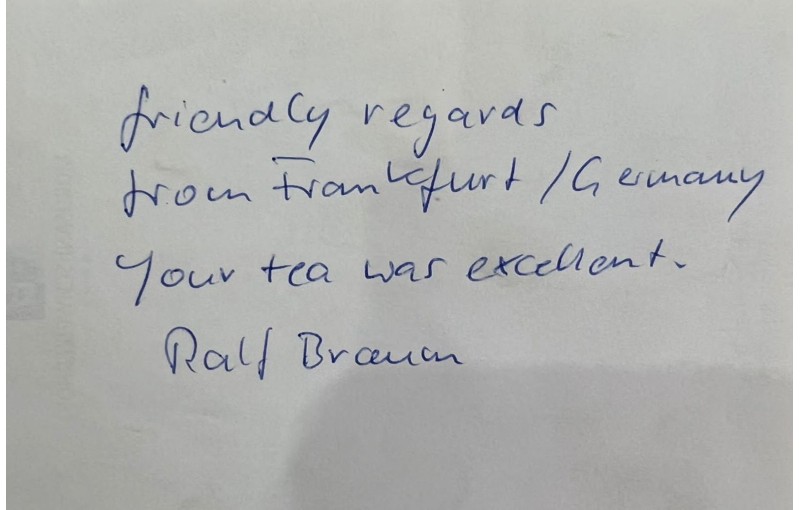 friendly regards
from Frankfurt / Germany
Your tea was excellent.
Ralf Braun